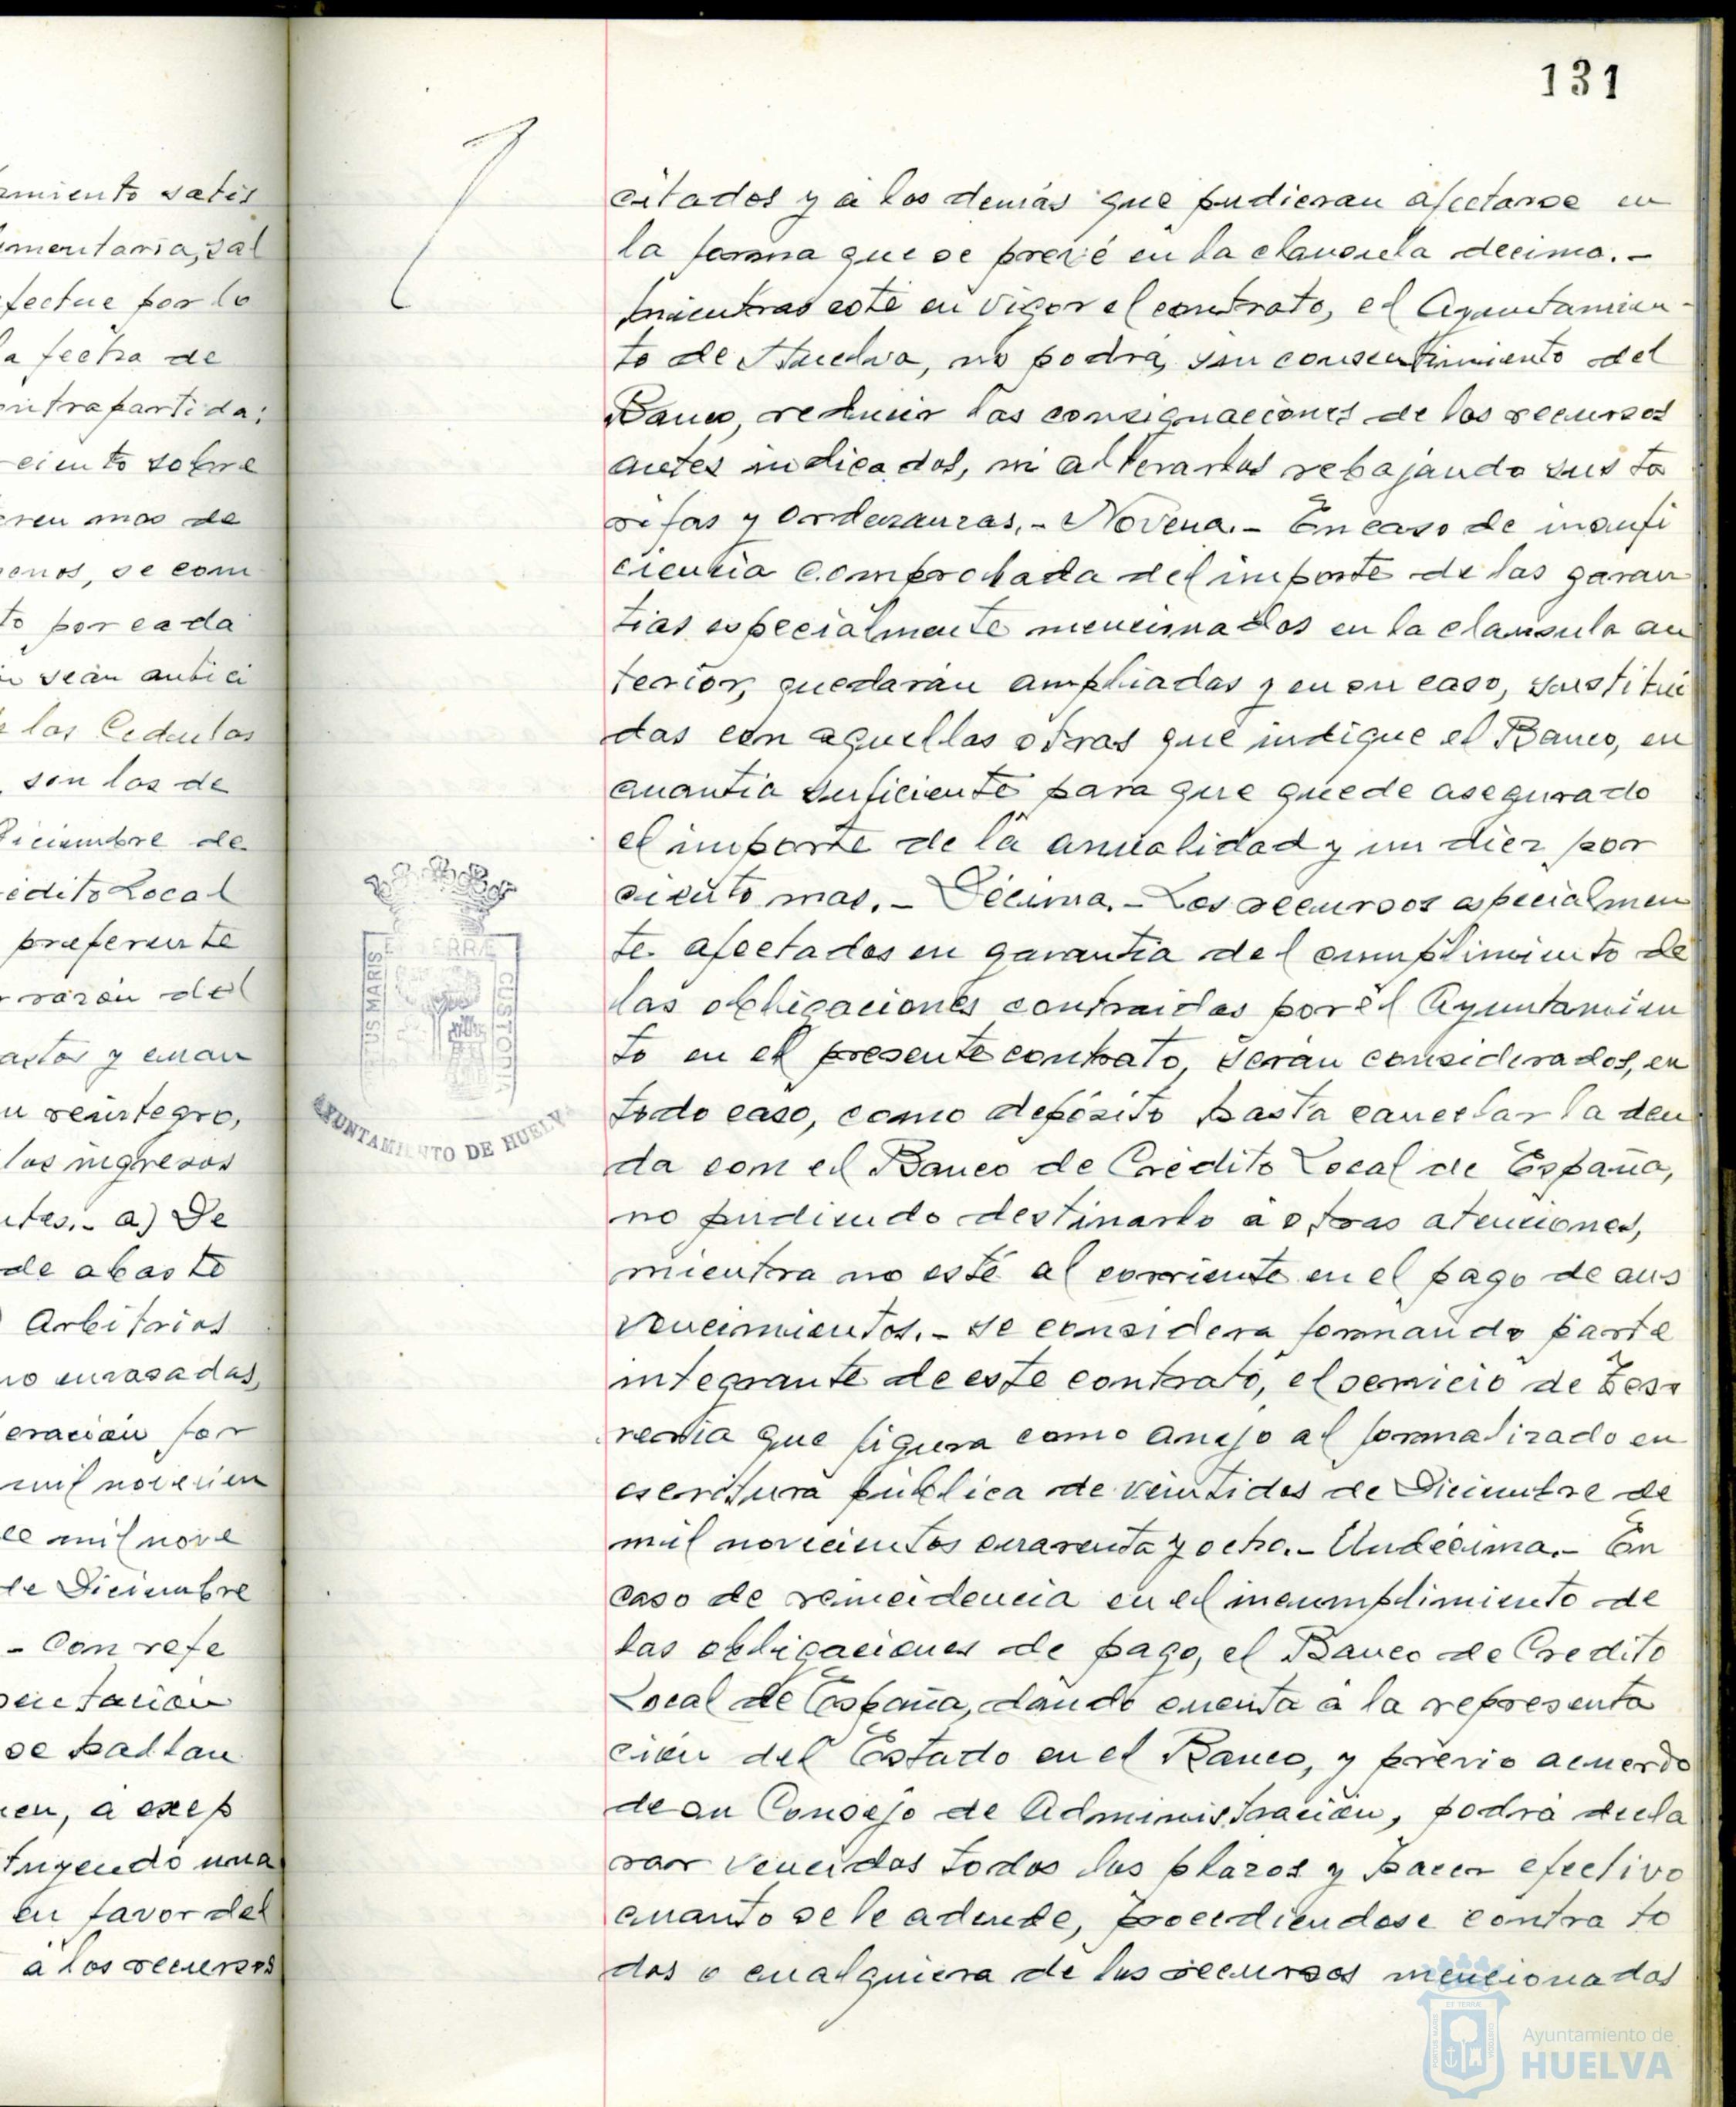 amiento satis
mentaria, sal
fectue por lo
a fecha de
ontrapartida:
ciento sobre
eren mas de
enos, se com
to por cada
sean antici
las Cedulas
son los de
Diciembre de
édito Local
preferente
razón del
astos y cuan
u reintegro,
los ingresos
ntes.- a) De
de abasto
Arbitrios
no envasadas,
eración for
mil novecien
ce mil nove
de Diciembre
- Con refe
sentación
se hallan
en, á excep
tuyendo una
en favor del
á los recursos
131
citados y á los demás que pudieran afectarse en
la forma que se prevé en la clausula decima.-
Mientras esté en vigor el contrato, el Ayuntamien-
to de Huelva, no podrá, sin consentimiento del
Banco, reducir las consignaciones de los recursos
antes indicados, ni alterarlos rebajando sus ta
rifas y ordenanzas.- Novena.- En caso de insufi
ciencia comprobada del importe de las garan
tias especialmente mencionados en la clausula an
terior, quedarán ampliadas y en su caso, sustitui
das con aquellas otras que indique el Banco, en
cuantia suficiente para que quede asegurado
el importe de la anualidad y un diez por
ciento mas.- Décima.- Los recursos especialmen
te afectados en garantia del cumplimiento de
las obligaciones contraidas por el Ayuntamien
to en el presente contrato, serán considerados, en
todo caso, como depósito hasta cancelar la deu
da con el Banco de Crédito Local de España,
no pudiendo destinarlo á otras atenciones,
mientra no esté al corriente en el pago de sus
vencimientos.- Se considera formando parte
integrante de este contrato, el servicio de Teso
reria que figura como anejo al formalizado en
escritura pública de veintidos de Diciembre de
mil novecientos cuarenta y ocho.- Undécima.- En
caso de reincidencia en el incumplimiento de
las obligaciones de pago, el Banco de Credito
Local de España, dando cuenta á la representa
ción del Estado en el Banco, y previo acuerdo
de su Consejo de Administración, podrá decla
rar vencidos todos los plazos y hacer efectivo
cuanto se le adeude, procediendose contra to
dos o cualquiera de los recursos mencionados
PORTUS MARIS
ET TERRÆ
CUSTODIA
AYUNTAMIENTO DE HUELVA
Ayuntamiento de
HUELVA